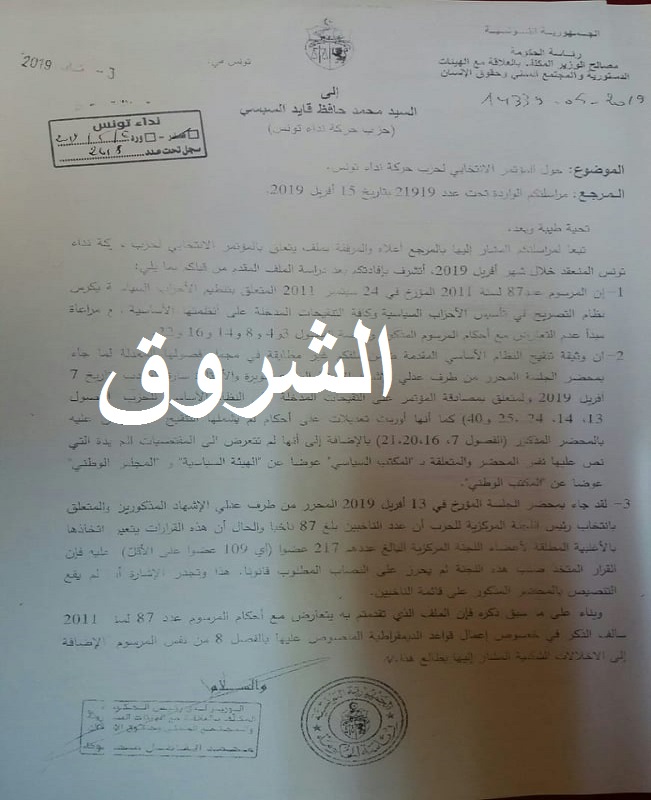 الجمهورية التونسية
رئاسة الحكومة
مصالح الوزير المكلف بالعلاقة مع الهيئات
الدستورية والمجتمع المدني وحقوق الإنسان
تونس في:
2019
إلى
السيد محمد حافظ قايد السبسي
(حزب حركة نداء تونس)
نداء تونس
سجل تحت عدد
الموضوع: حول المؤتمر الانتخابي لحزب حركة نداء تونس.
المرجع: مراسلتكم الواردة تحت عدد 21919 بتاريخ 15 أفريل 2019.
تحية طيبة وبعد،
تبعا لمراسلتكم المشار إليها بالمرجع أعلاه والمرفقة بملف يتعلق بالمؤتمر الانتخابي لحزب نداء
تونس المنعقد خلال شهر أفريل 2019، أتشرف بإفادتكم بعد دراسة الملف المقدم من قبلكم بما يلي:
1- إن المرسوم عدد 87 لسنة 2011 المؤرخ في 24 سبتمبر 2011 المتعلق بتنظيم الأحزاب السياسية يكرس
نظام التصريح في تأسيس الأحزاب السياسية وكافة التنقيحات المدخلة على أنظمتها الأساسية مراعاة
مبدأ عدم التعارض مع أحكام المرسوم 3 و4 و 8 و 14 و 16 و
2- ان وثيقة تنقيح النظام الأساسي المقدمة من غير مطابقة في لما جاء
بمحضر الجلسة المحرر من طرف عدلي 7
أفريل 2019 والمتعلق بمصادقة المؤتمر على التنقيحات المدخلة النظام الأساسي للحزب
13، 14، 24، 25، و40) كما أنها أوردت تعديلات على أحكام لم يشملها التنقيح عليه
بالمحضر المذكور (الفصول 7، 16، 20، 21) بالإضافة إلى أنها لم تتعرض الى المقتضيات التي
نص عليها نفس المحضر والمتعلقة بـ "المكتب السياسي" عوضا عن "الهيئة السياسية" و "المجلس الوطني"
عوضا عن "المكتب الوطني".
3- لقد جاء بمحضر الجلسة المؤرخ في 13 أفريل 2019 المحرر من طرف عدلي الإشهاد المذكورين والمتعلق
بانتخاب رئيس اللجنة المركزية للحزب أن عدد الناخبين بلغ 87 ناخبا والحال أن هذه القرارات يتعين اتخاذها
بالأغلبية المطلقة لأعضاء اللجنة المركزية البالغ عددهم 217 عضوا (أي 109 عضوا على الأقل) عليه فإن
القرار المتخذ صلب هذه اللجنة لم يحرز على النصاب المطلوب قانونا. هذا وتجدر الإشارة لم يقع
التنصيص بالمحضر المذكور على قائمة الناخبين.
وبناء على ما سبق ذكره فإن الملف الذي تقدمتم به يتعارض مع أحكام المرسوم عدد 87 لسنة 2011
سالف الذكر في خصوص إعمال قواعد الديمقراطية المنصوص عليها بالفصل 8 من نفس المرسوم الإضافة
إلى الاخلالات المشار إليها بطالع هذا.
والسلام
الشروق